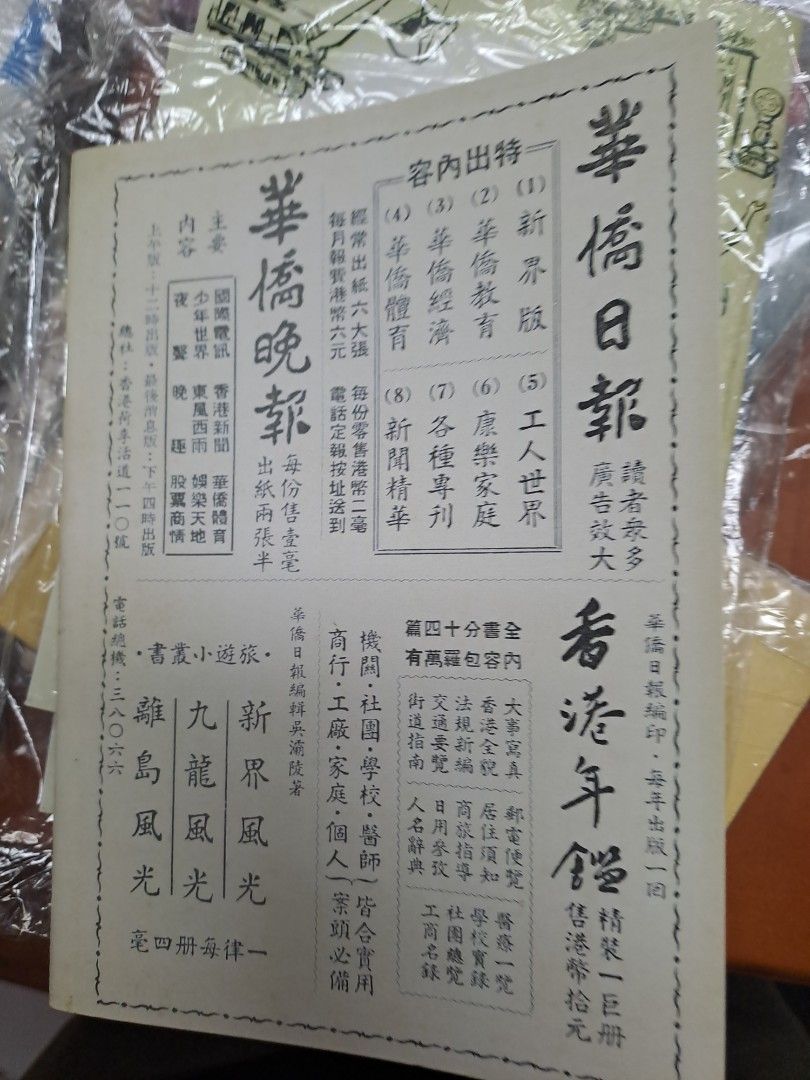 華僑日報
讀者衆多
廣告效大
特出內容
(1)新界版
(2)華僑教育
(3)華僑經濟
(4)華僑體育
(5)工人世界
(6)康樂家庭
(7)各種專刊
(8)新聞精華
經常出紙六大張 每份零售港幣二毫
每月報費港幣六元 電話定報按址送到
華僑晚報
每份售壹毫
出紙兩張半
主要
內容
國際電訊 香港新聞 華僑體育
少年世界 東風西雨 娛樂天地
夜聲 晚趣 股票商情
上午版:十二時出版·最後消息版:下午四時出版
總社:香港荷李活道一一〇號
電話總機:三八〇六六
華僑日報編印·每年出版一回
香港年鑑
精裝一巨册
售港幣拾元
全書分十四篇
內容包羅萬有
大事寫真 郵電便覽 醫療一覽
香港全貌 居住須知 學校實錄
法規新編 商旅指導 社團總覽
交通要覽 日用參攷 工商名錄
街道指南 人名辭典
機關·社團·學校·醫師
商行·工廠·家庭·個人
皆合實用
案頭必備
華僑日報編輯吳灞陵著
·旅遊小叢書·
新界風光
九龍風光
離島風光
一律每册四毫